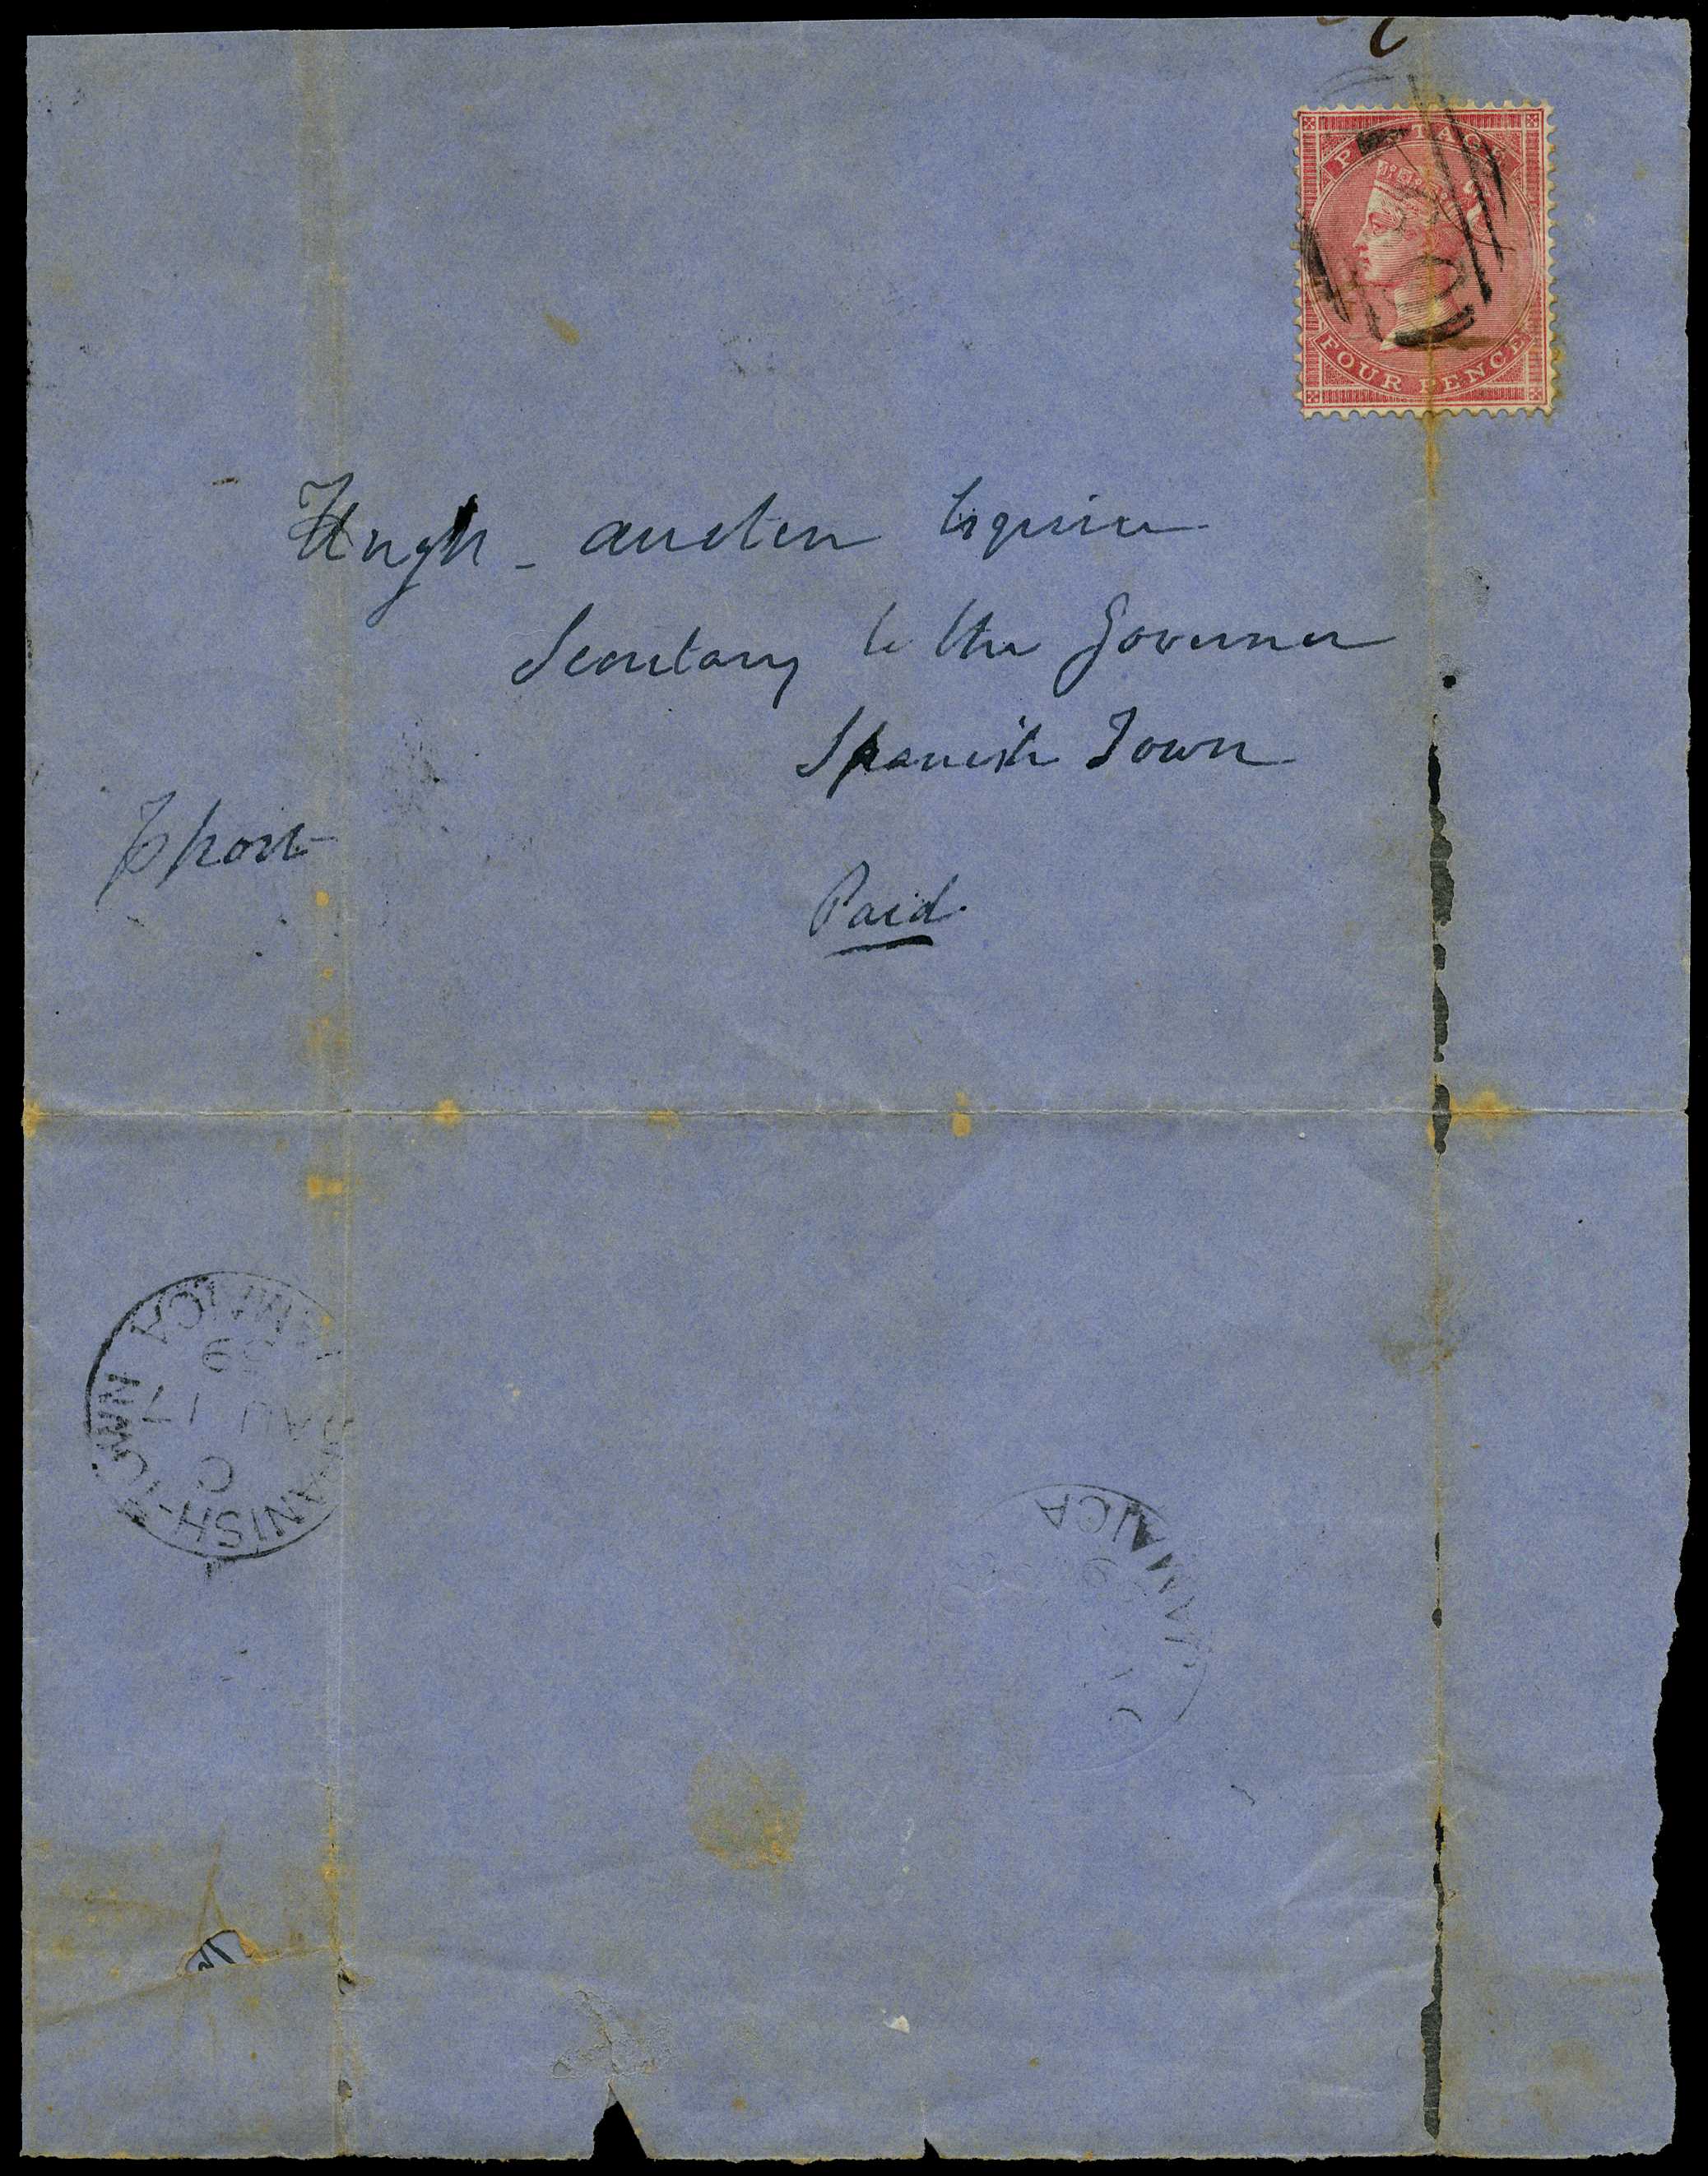 POSTAGE
FOUR PENCE
Hugh - Austen Esquire
Secretary to the Governor
Spanish Town
Paid
SPANISH-TOWN JAMAICA
C
AU 17
59
JAMAICA